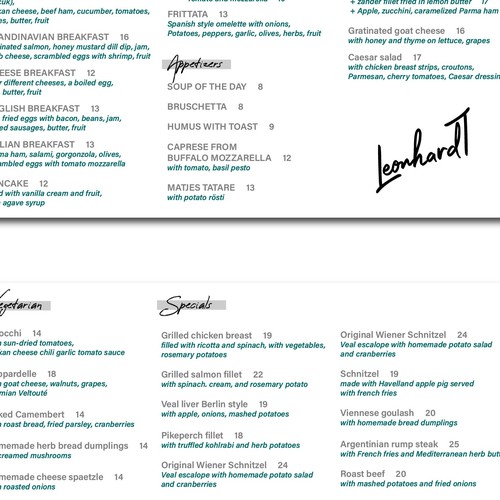 kan cheese, beef ham, cucumber, tomatoes,
es, butter, fruit
ANDINAVIAN BREAKFAST 16
inated salmon, honey mustard dill dip, jam,
b cheese, scrambled eggs with shrimp, fruit
EESE BREAKFAST 12
r different cheeses, a boiled egg,
, butter, fruit
GLISH BREAKFAST 13
fried eggs with bacon, beans, jam,
ed sausages, butter, fruit
LIAN BREAKFAST 13
ma ham, salami, gorgonzola, olives,
ambled eggs with tomato mozzarella
NCAKE 12
d with vanilla cream and fruit,
agave syrup
FRITTATA 13
Spanish style omelette with onions,
Potatoes, peppers, garlic, olives, herbs, fruit
Appetizers
SOUP OF THE DAY 8
BRUSCHETTA 8
HUMUS WITH TOAST 9
CAPRESE FROM
BUFFALO MOZZARELLA 12
with tomato, basil pesto
MATJES TATARE 13
with potato rösti
+ zander fillet fried in lemon butter 17
+ Apple, zucchini, caramelized Parma ham
Gratinated goat cheese 16
with honey and thyme on lettuce, grapes
Caesar salad 17
with chicken breast strips, croutons,
Parmesan, cherry tomatoes, Caesar dressin
LeonhardT
egetarian
occhi 14
sun-dried tomatoes,
kan cheese chili garlic tomato sauce
ppardelle 18
goat cheese, walnuts, grapes,
mian Veltouté
ked Camembert 14
roast bread, fried parsley, cranberries
memade herb bread dumplings 14
creamed mushrooms
memade cheese spaetzle 14
roasted onions
Specials
Grilled chicken breast 19
filled with ricotta and spinach, with vegetables,
rosemary potatoes
Grilled salmon fillet 22
with spinach. cream, and rosemary potato
Veal liver Berlin style 19
with apple, onions, mashed potatoes
Pikeperch fillet 18
with truffled kohlrabi and herb potatoes
Original Wiener Schnitzel 24
Veal escalope with homemade potato salad
and cranberries
Original Wiener Schnitzel 24
Veal escalope with homemade potato salad
and cranberries
Schnitzel 19
made with Havelland apple pig served
with french fries
Viennese goulash 20
with homemade bread dumplings
Argentinian rump steak 25
with French fries and Mediterranean herb butt
Roast beef 20
with mashed potatoes and fried onions